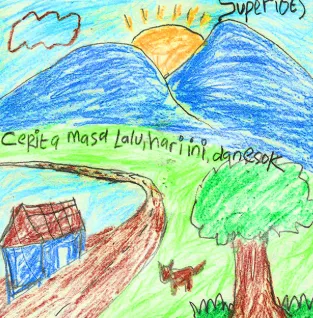 Superiots
Cerita masa lalu, hari ini, dan esok